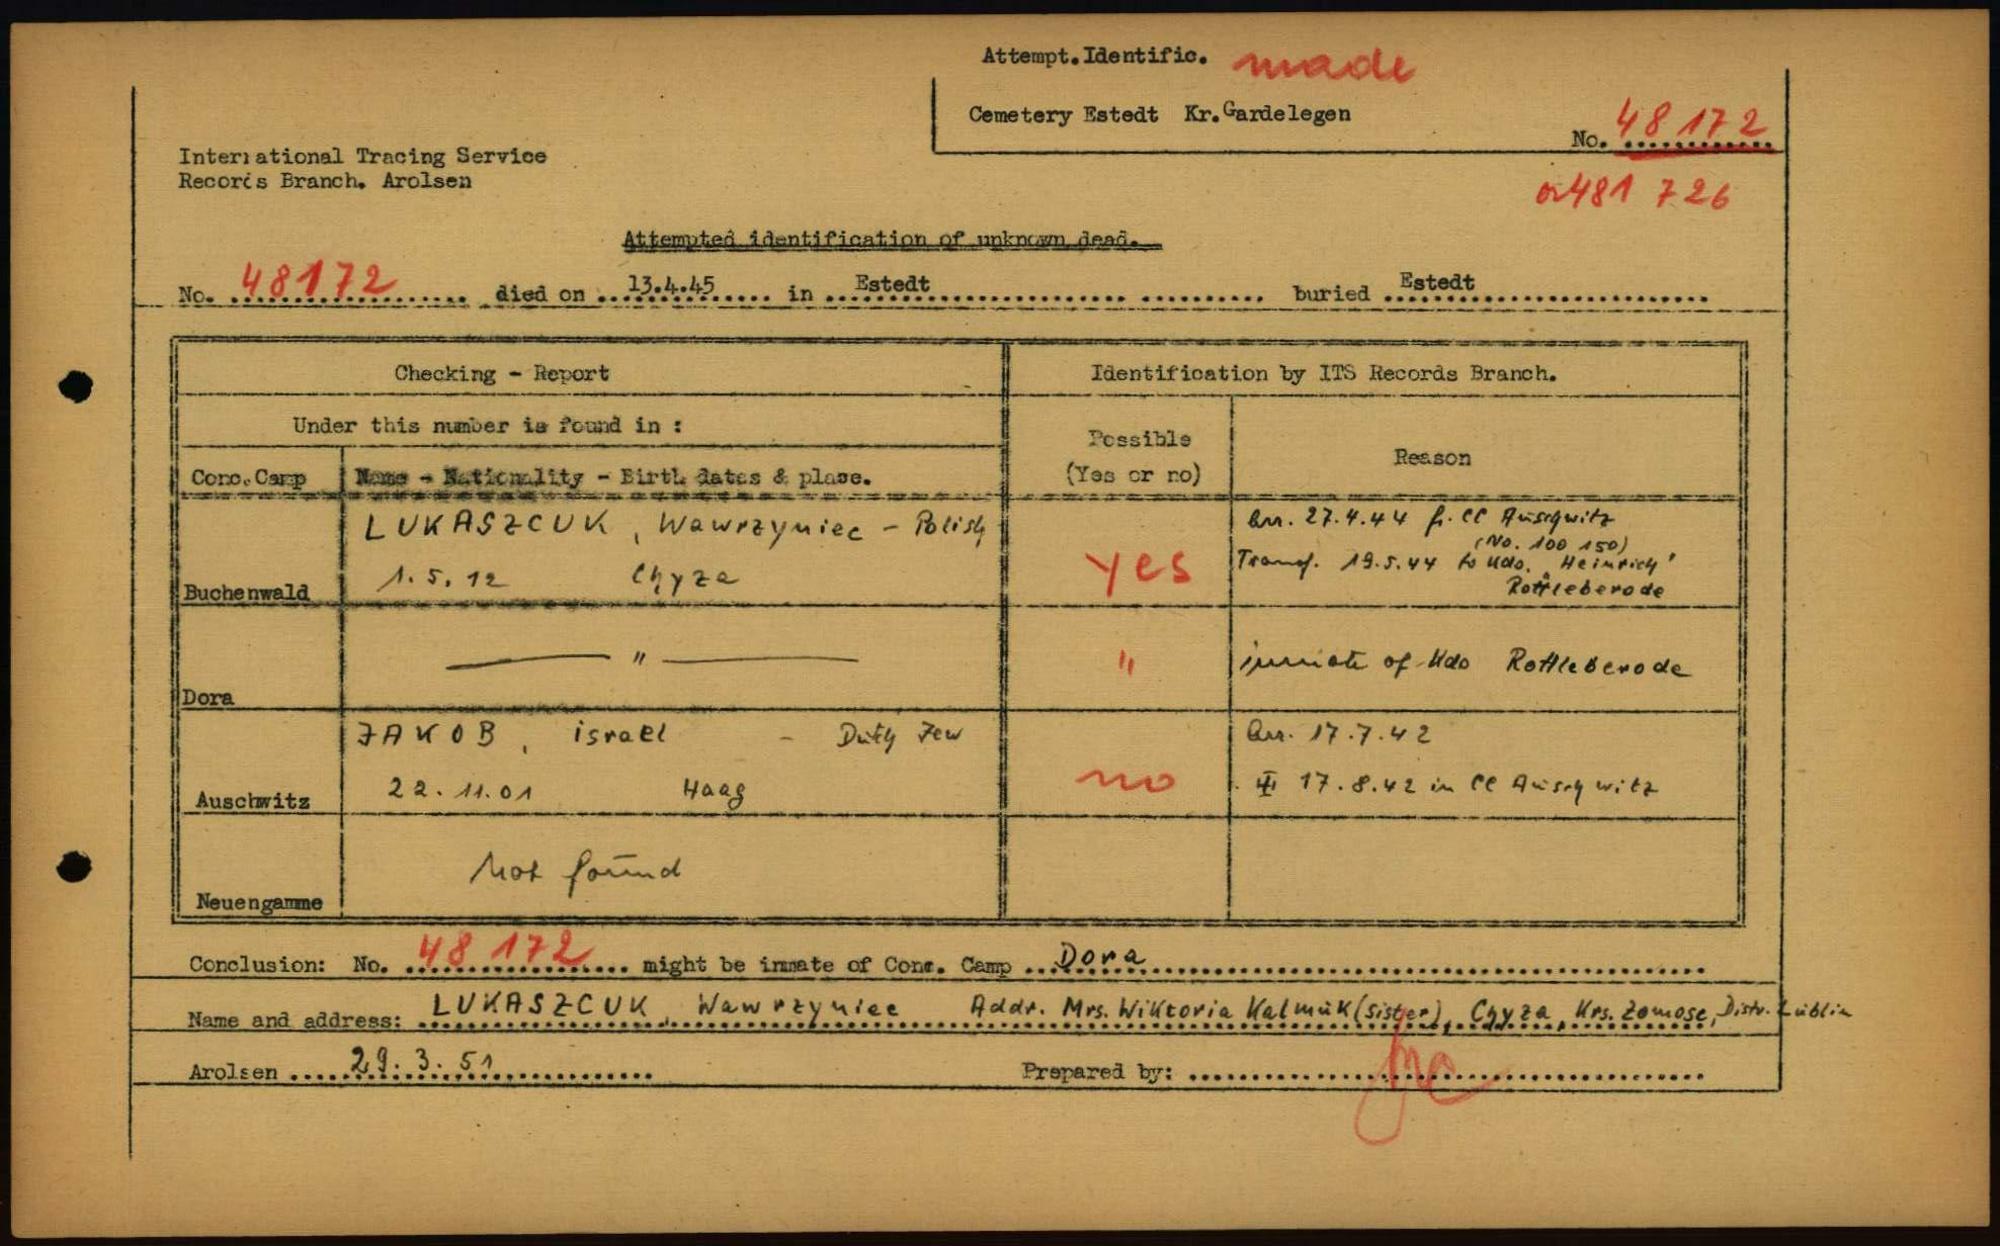 Attempt.Identific. made
Cemetery Estedt Kr.Gardelegen
No. 48172
International Tracing Service
Records Branch. Arolsen
or 481 726
Attempted identification of unknown dead.
No. 48172 died on 13.4.45 in Estedt buried Estedt
Checking - Report
Identification by ITS Records Branch.
Under this number is found in :
Possible
(Yes or no)
Reason
Conc.Camp
Name - Nationality - Birth dates & place.
LUKASZCUK, Wawrzyniec - Polish
1.5.12 Chyza
Buchenwald
yes
Arr. 27.4.44 fr. CC Auschwitz
(No. 100 150)
Transf. 19.5.44 to Kdo. "Heinrich"
Rottleberode
Dora
— " —
"
inmate of Kdo Rottleberode
JAKOB, israel - Dutch Jew
22.11.01 Haag
Auschwitz
no
Arr. 17.7.42
17.8.42 in CC Auschwitz
Neuengamme
Not found
Conclusion: No. 48172 might be inmate of Conc. Camp Dora
Name and address: LUKASZCUK, Wawrzyniec Addr. Mrs. Wiktoria Kalmuk (sister), Chyza, Krs. Zomosc, Distr. Lublin
Arolsen 29.3.51
Prepared by: